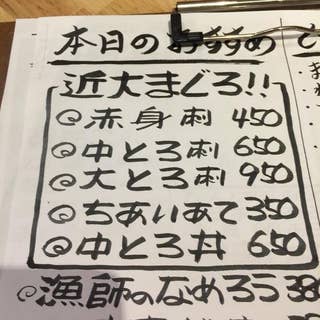 本日のおすすめ
近大まぐろ!!
赤身刺 450
中とろ刺 650
大とろ刺 950
ちあいあて 350
中とろ丼 650
漁師のなめろう